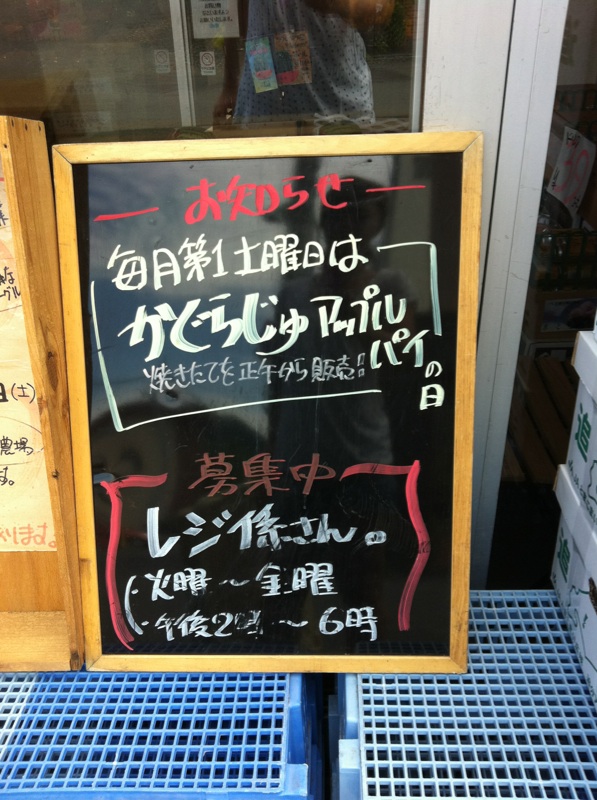 お知らせ
毎月第1土曜日は
かぐらじゅアップル
パイの日
焼きたてを正午から販売!!
募集中
レジ係さん。
火曜〜金曜
午後2時〜6時
(土)
農場
す。
ります。
追
追